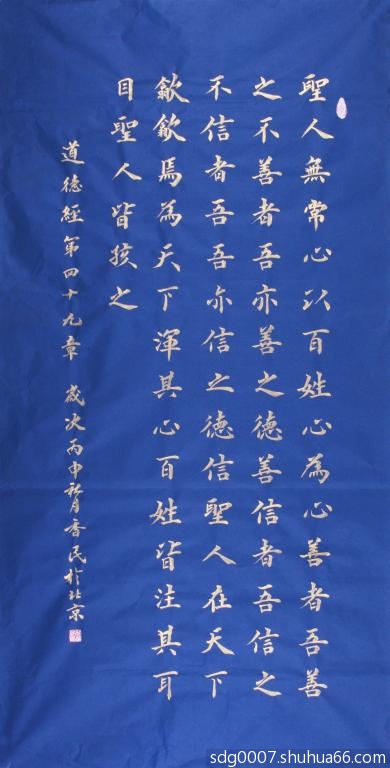 聖人無常心以百姓心為心善者吾善
之不善者吾亦善之德善信者吾信之
不信者吾吾亦信之德信聖人在天下
歙歙焉為天下渾其心百姓皆注其耳
目聖人皆孩之
道德經第四十九章 歲次丙申秋月民於北京
sdg0007.shuhua66.com